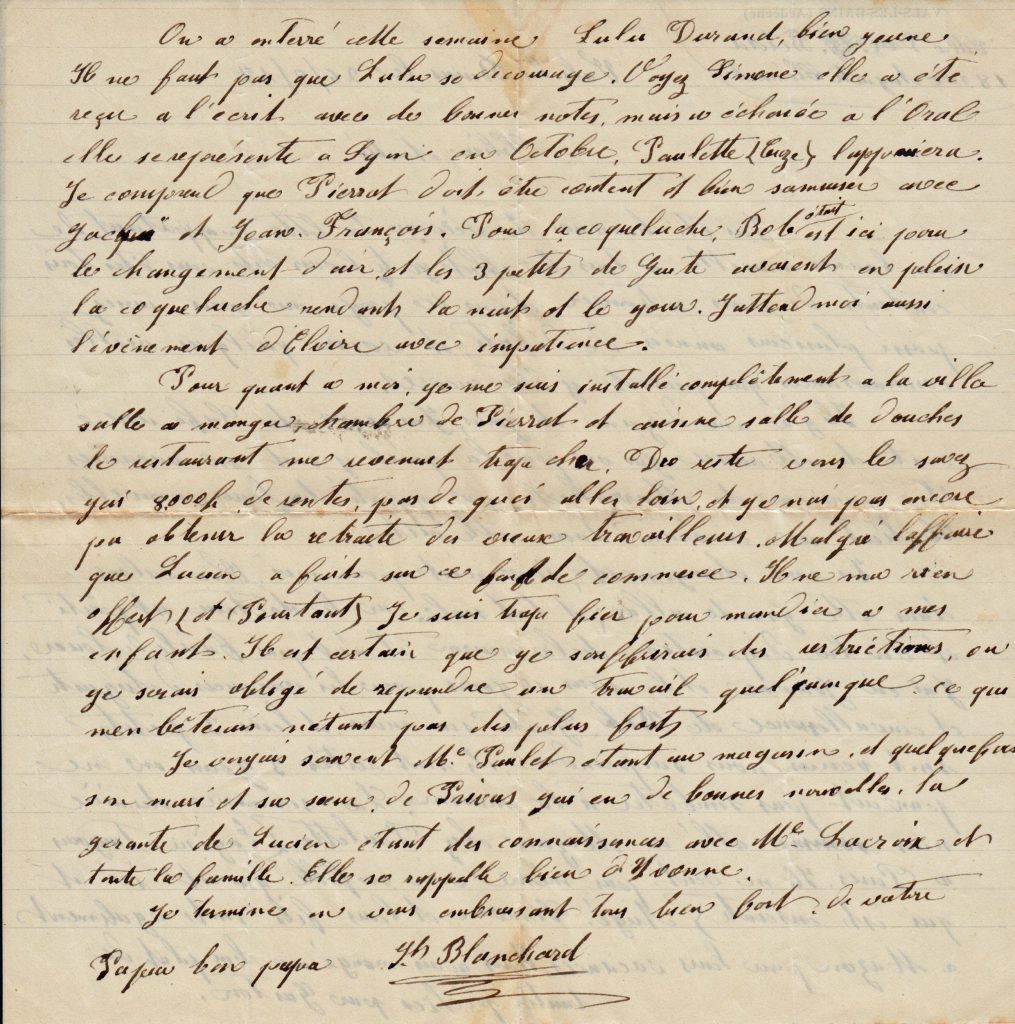 On a enterré cette semaine Lulu Durand, bien jeune
Il ne faut pas que Lulu se decourage. Voyez Simone elle a été
reçu a l'écrit avec de bonnes notes, mais a échouée a l'Oral
elle se représente a Lyon en Octobre, Paulette
Je comprend que Pierrot doit être content et bien samuser avec
et Jean. François. Pour la coqueluche, Bob était ici pour
le changement d'air, et les 3 petits de avaient en plein
la coqueluche rendants la nuit et le jour. J'attend moi aussi
l'évènement d'Elvire avec impatience.
Pour quant a moi, je me suis installé complêtement a la villa
salle a manger, chambre de Pierrot et cuisine salle de douches
le restaurant me revenait trop cher. Du reste vous le savez
jai 8.000f de rentes, pas de quoi aller loin, et je nai pas encore
pu obtenir la retraite des vieux travailleurs. Malgré laffaire
que Lucien a fait sur ce de commerce. Il ne ma rien
offert (et Pourtant) Je suis trop fier pour mandier a mes
enfants. Il est certain que je souffrirais des restrictions, ou
je serais obligé de reprendre un travail quelquonque. ce qui
menbêterais nétant pas des plus forts
Je voyais souvent Me. Paulet étant au magasin, et quelquefois
son mari et sa sœur. de Privas jai en de bonnes nouvelles. la
gerante de Lucien étant des connaissances avec Me. Lacroix et
toute la famille. Elle se rappelle bien d'Yvonne.
Je termine en vous embrassant tous bien fort. de votre
Papa bon papa Jh Blanchard